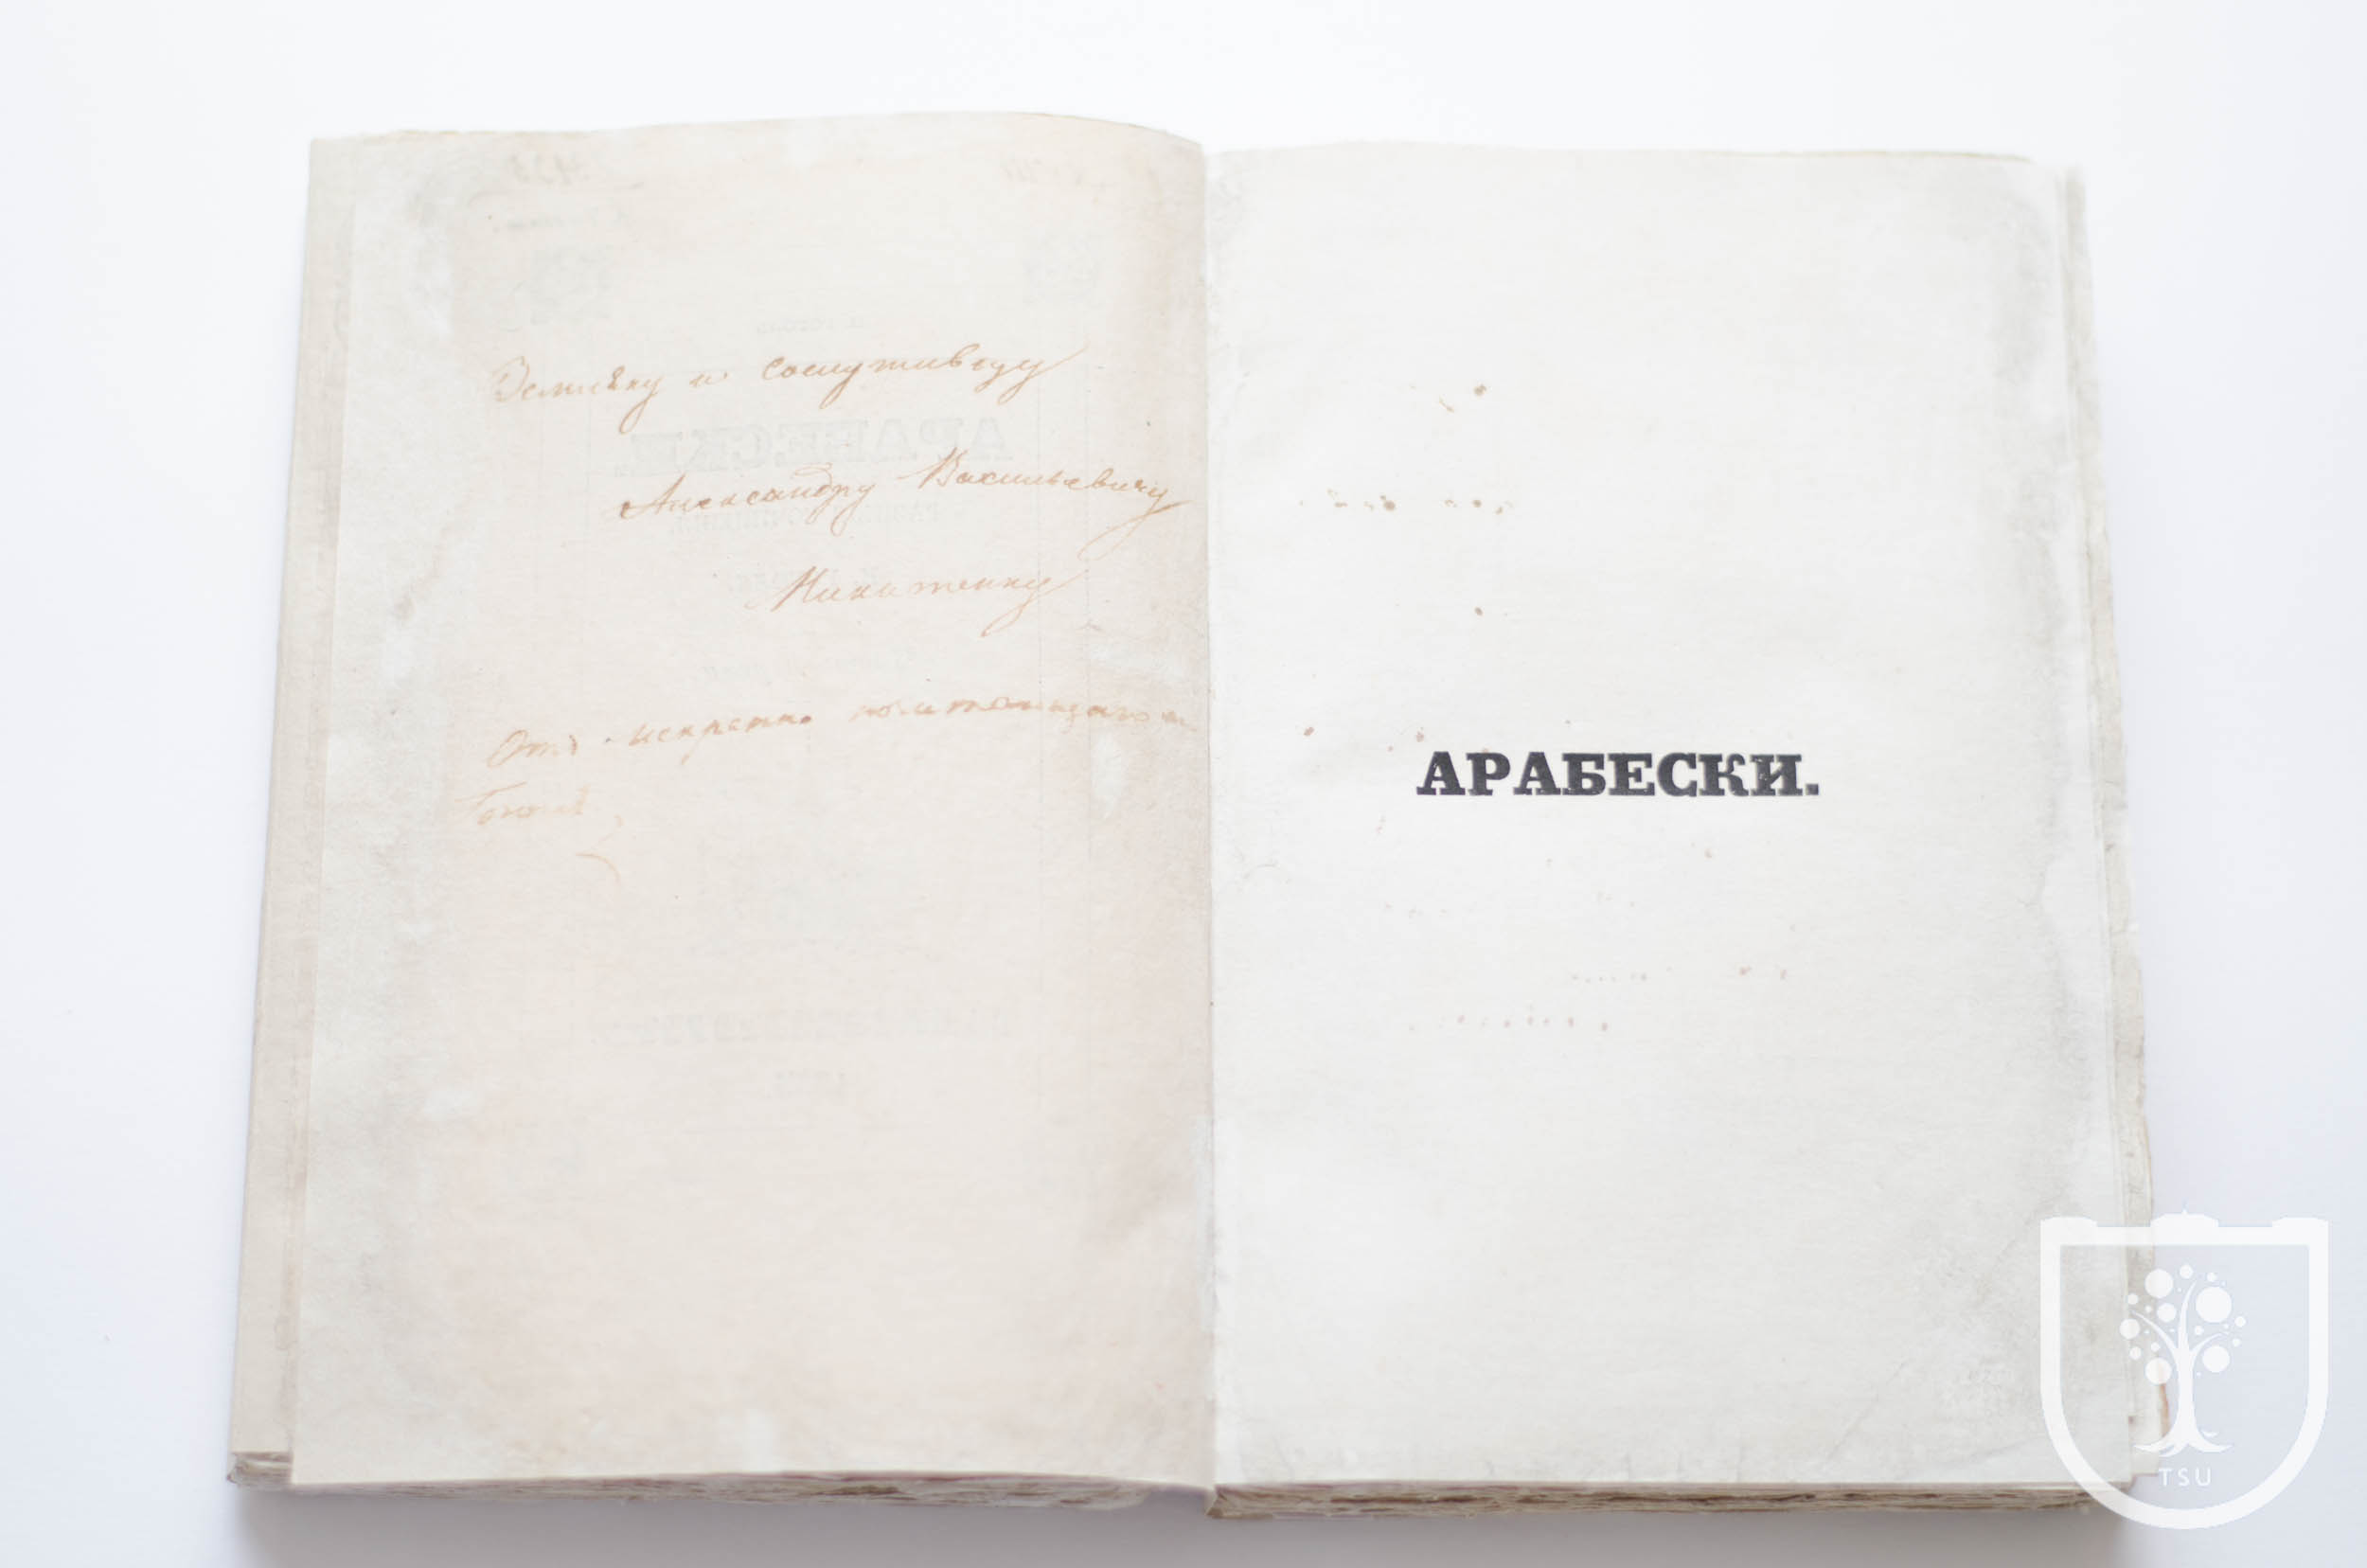 Земляку и сослуживцу
Александру Васильевичу
Никитенку
Отъ искренно почитающаго
Гоголя
АРАБЕСКИ.
TSU